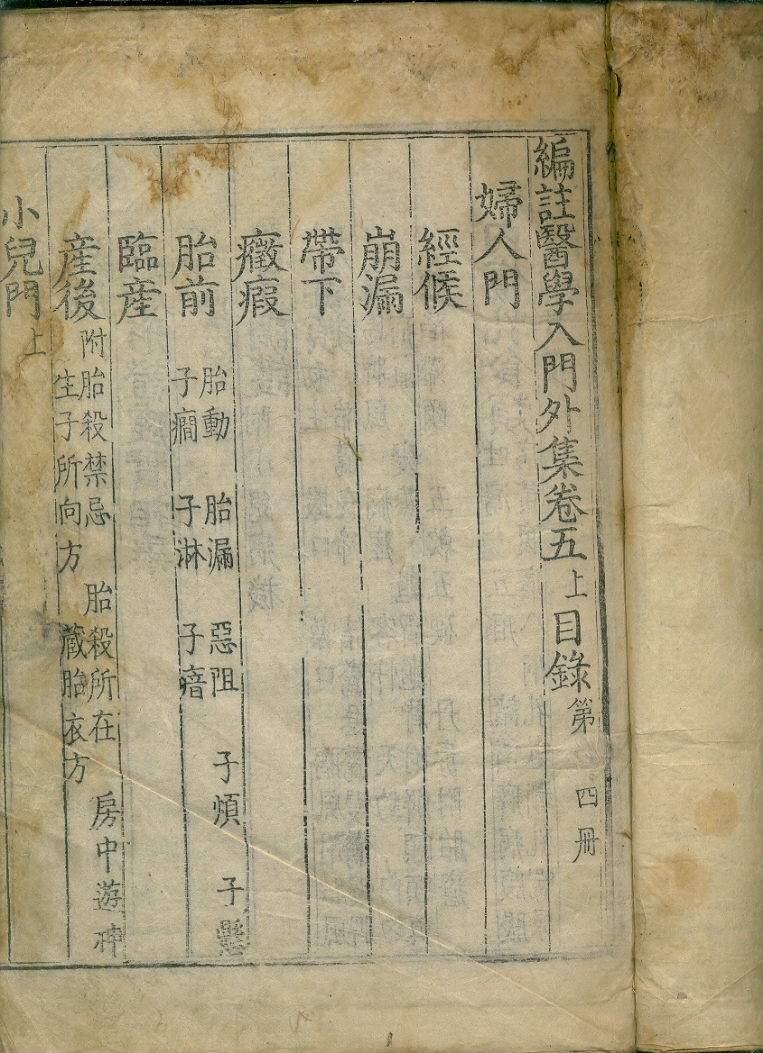 編註醫學入門外集卷五上目錄第四册
婦人門
經候
崩漏
帶下
癥瘕
胎前 胎動 胎漏 惡阻 子煩 子懸
子癎 子淋 子瘖
臨産
産後 附胎殺禁忌 胎殺所在 房中遊神
生子所向方 藏胎衣方
小兒門上